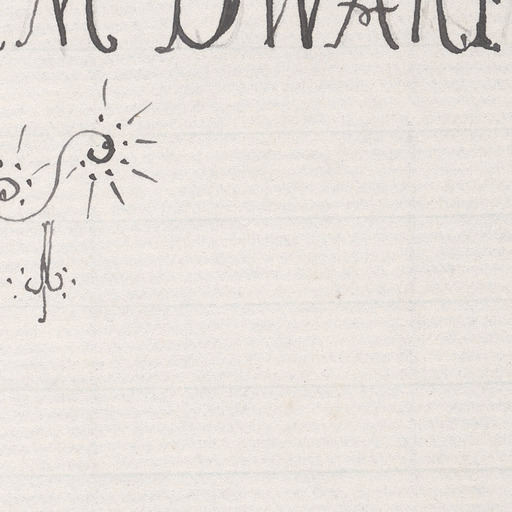 M DWARF